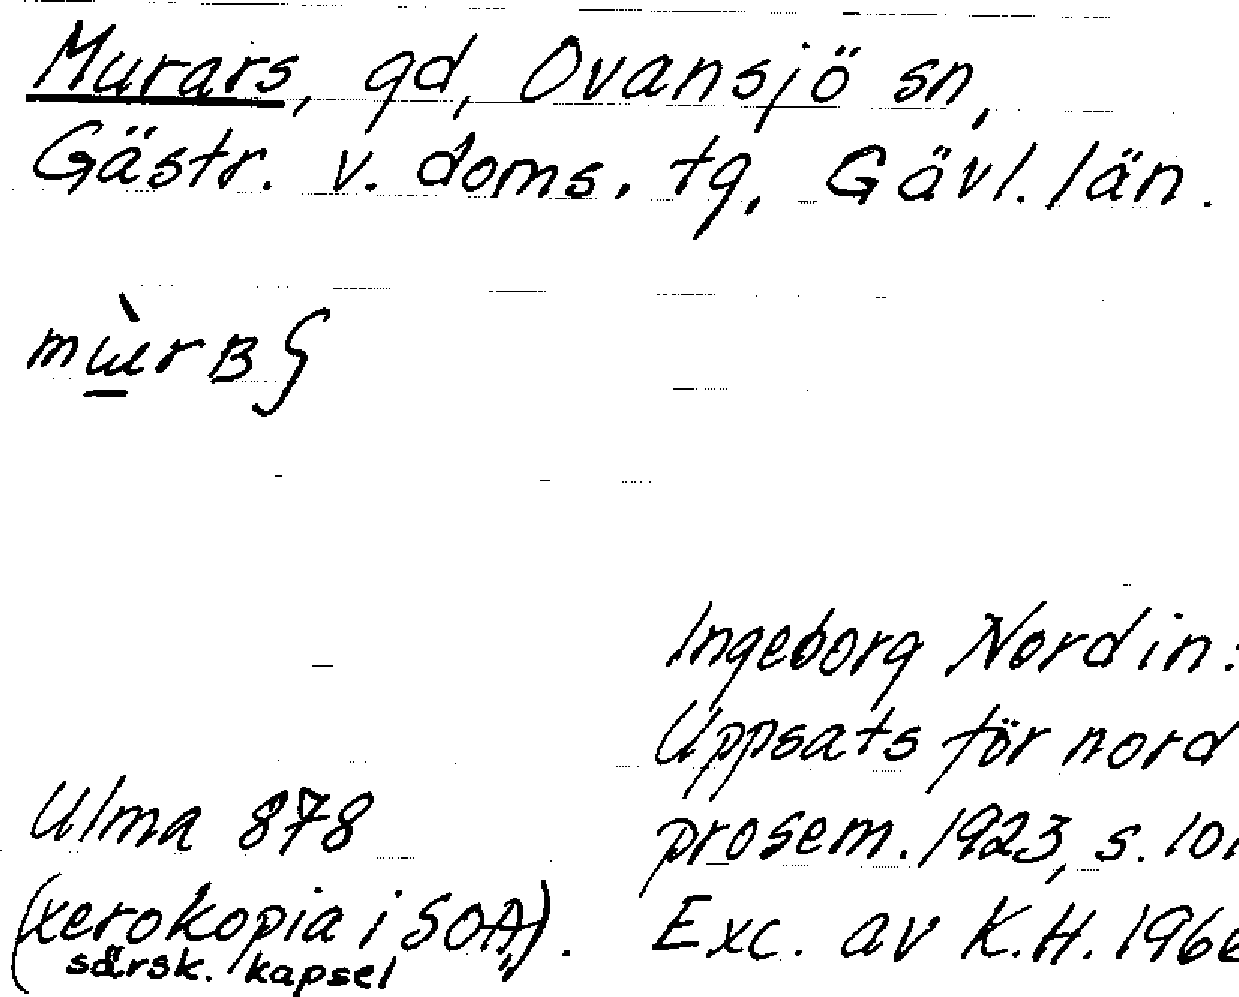 Murars, gd, Ovansjö sn,
Gästr. v. doms. tg, Gävl. län.
Ingeborg Nordin:
Uppsats för nord
prosem. 1923, s. 101
Exc. av K.H. 196
Ulma 878
(xerokopia i SOÄ).
särsk. kapsel